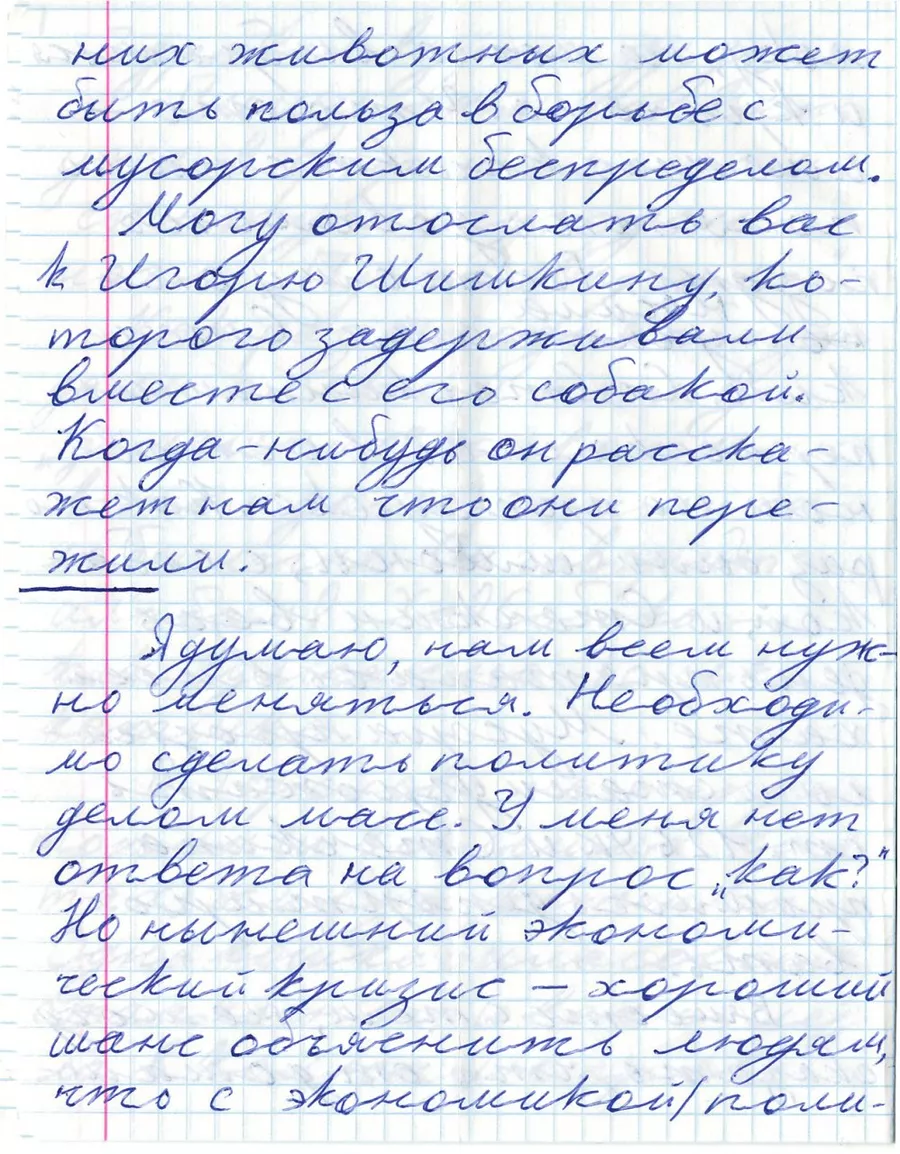 них животных может
быть польза в борьбе с
мусорским беспределом.
Могу отослать вас
к Игорю Шишкину, ко-
торого задерживали
вместе с его собакой.
Когда-нибудь он расска-
жет нам что они пере-
жили.
Я думаю, нам всем нуж-
но меняться. Необходи-
мо сделать политику
делом масс. У меня нет
ответа на вопрос „как?"
Но нынешний экономи-
ческий кризис – хороший
шанс объяснить людям,
что с экономикой/поли-